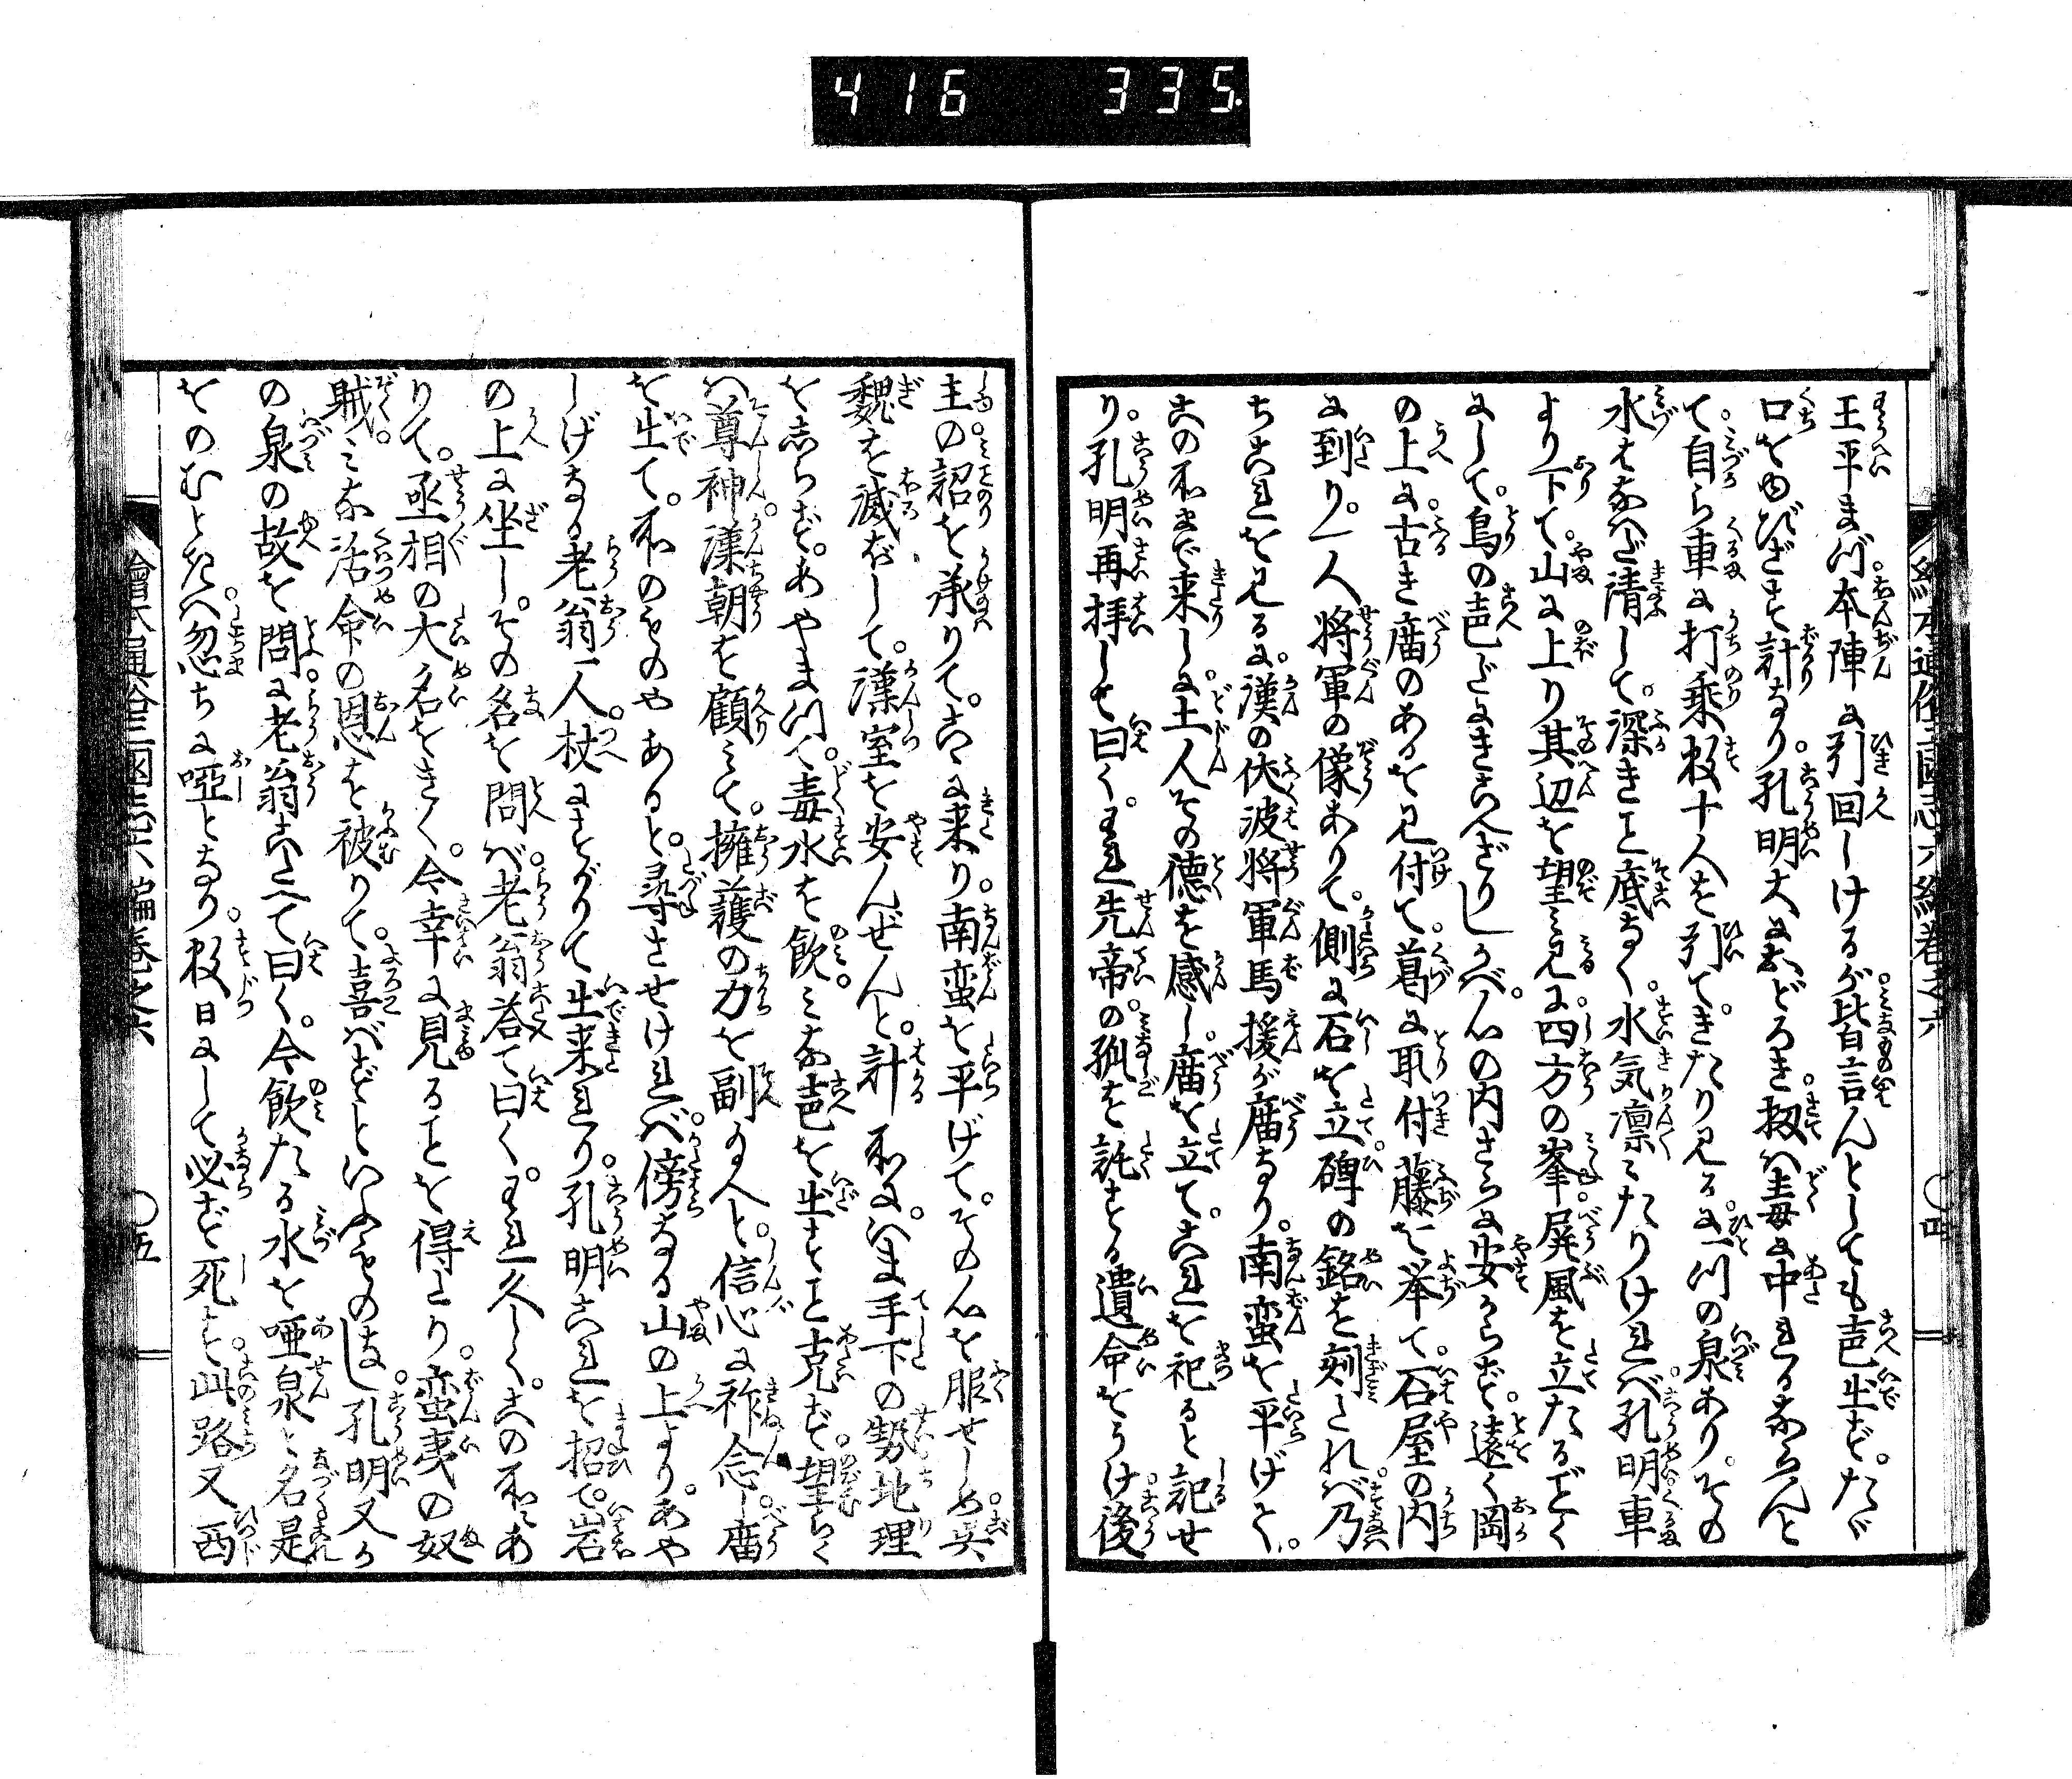 416 335.
王平まづ本陣に引回しけるが皆言んとしても声出ずたゞ
口をゆびざす計なり孔明大におどろき扨は毒に中れるならんと
て自ら車に打乗数十人を引てきたり見るに一つの泉ありその
水はなはだ清して深きこと底なく水気凛々たりければ孔明車
より下て山に上り其辺を望み見に四方の峯屏風を立たるごとく
にして鳥の声だにきこえざりしかば心の内さらに安からず遠く岡
の上に古き廟のあるを見付て葛に取付藤を挙て石屋の内
に到り一人将軍の像ありて側に石を立碑の銘を刻これば乃
ちこれを見るに漢の伏波将軍馬援が廟なり南蛮を平げとく
此の所まで来しに土人その徳を感し廟を立てこれを祀ると記せ
り孔明再拝して曰くわれ先帝の孤を託する遺命をうけ後
主の詔を承りてこゝに来り南蛮を平げてその心を服せしめ呉
魏を滅ぼして漢室を安んぜんと計所にいま手下の勢地理
をしらずあやまつて毒水を飲みな声を出すこと克ず望らく
は尊神漢朝を顧みて擁護の力を副給へと信心に祚念し廟
を出て所のものやあると尋させければ傍なる山の上よりあや
しげなる老翁一人杖にすがりて出来れり孔明これを招て岩
の上に坐しその名を問ば老翁答て曰くわれ久しくこの所にあ
りて丞相の大名をきく今幸に見ることを得たり蛮夷の奴
賊みな活命の恩を被りて喜ばずといふものなし孔明又か
の泉の故を問に老翁こたへて曰く今飲たる水を唖泉と名是
をのむときは忽ちに唖となり数日にして必ず死す此路又西